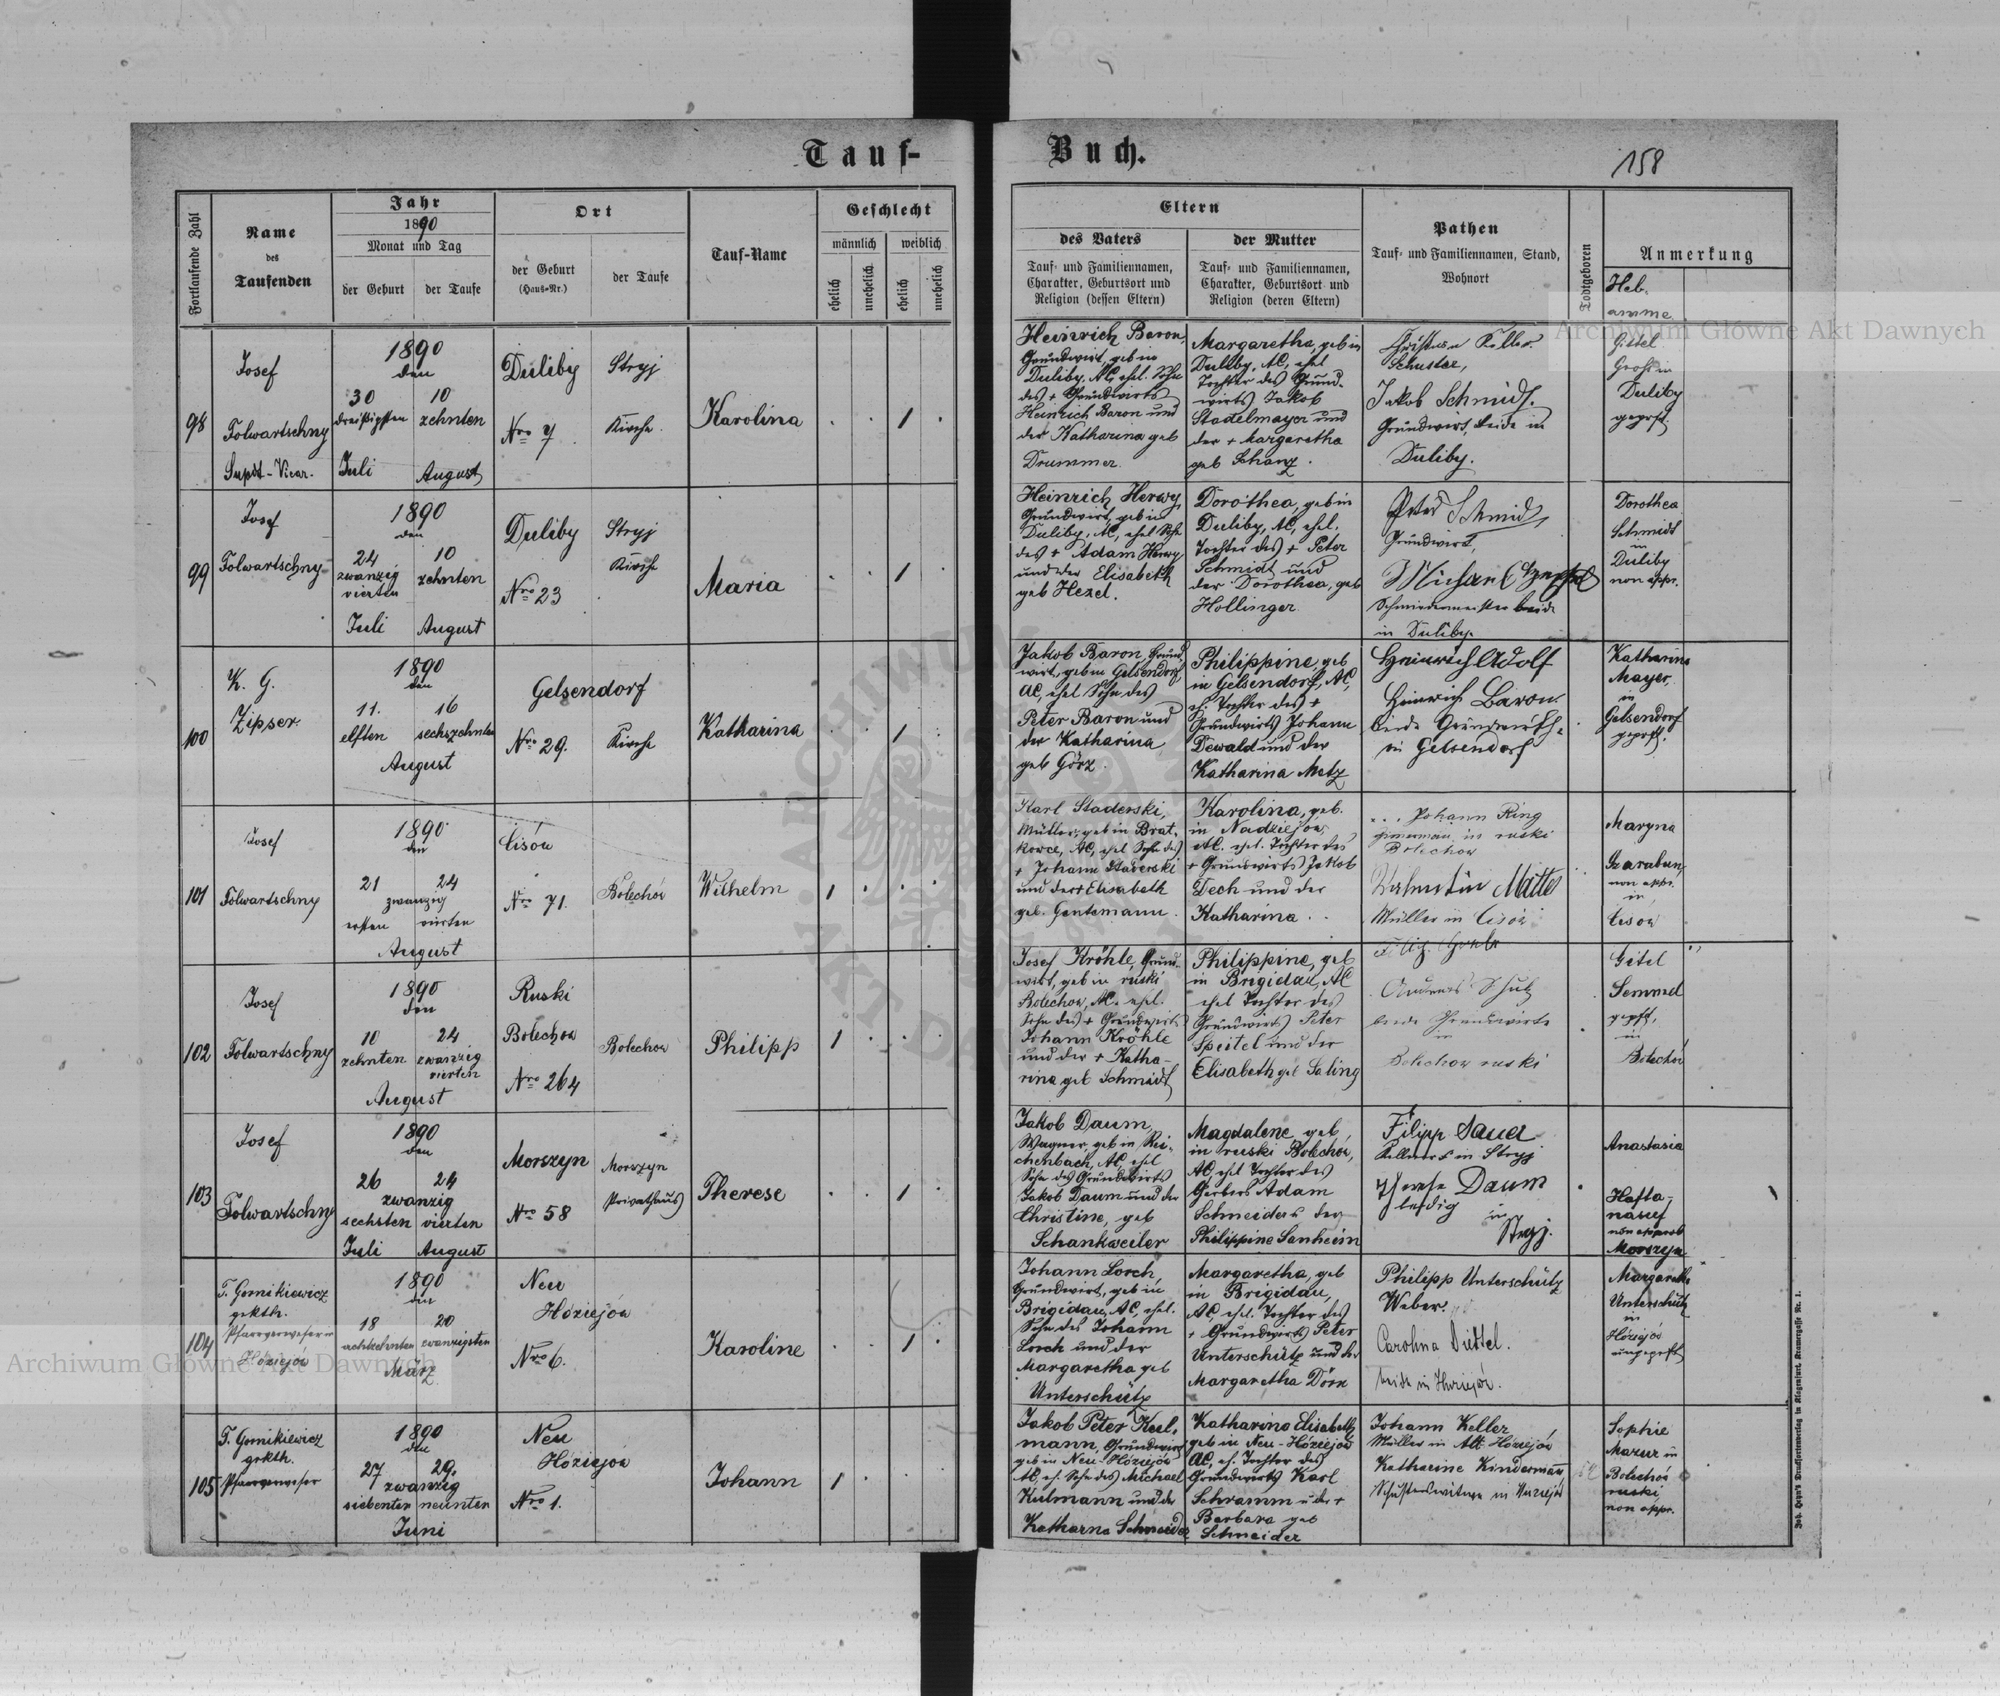 Tauf-
Buch.
158
Fortlaufende Zahl
Name
des
Taufenden
Jahr
1890
Monat und Tag
der Geburt
der Taufe
Ort
der Geburt
(Haus-Nr.)
der Taufe
Tauf-Name
Geschlecht
männlich
weiblich
ehelich
unehelich
ehelich
unehelich
Eltern
des Vaters
Tauf- und Familiennamen,
Charakter, Geburtsort und
Religion (dessen Eltern)
der Mutter
Tauf- und Familiennamen,
Charakter, Geburtsort und
Religion (deren Eltern)
Pathen
Tauf- und Familiennamen, Stand,
Wohnort
Todtgeboren
Anmerkung
Heb-
amme
98
Josef
Folwartschny
Supdt-Vicar.
1890
den
30 10
dreißigsten zehnten
Juli August
Duliby
Nro 7
Stryj
Kirche
Karolina
1
Heinrich Baron,
Grundwirt, geb in
Duliby, AC, ehel. Sohn
des + Grundwirts
Heinrich Baron und
der Katharina geb
Drummer
Margaretha, geb in
Duliby, AC, ehel
Tochter des Grund-
wirts Jakob
Stadelmayer und
der + Margaretha
geb Schanz.
Christian Keller
Schuster,
Jakob Schmidt
Grundwirt, beide in
Duliby.
Gittel
in
Duliby
geprft.
99
Josef
Folwartschny
1890
den
24 10
zwanzig zehnten
vierten
Juli August
Duliby
Nro 23
Stryj
Kirche
Maria
1
Heinrich Herwy,
Grundwirt, geb in
Duliby, AC, ehel Sohn
des + Adam Herwy
und der Elisabeth
geb Hezel.
Dorothea, geb in
Duliby, AC, ehel.
Tochter des + Peter
Schmidt und
der Dorothea, geb
Hollinger.
Peter Schmidt
Grundwirt,
Michael
Schmiedemeister beide
in Duliby.
Dorothea
Schmidt
in
Duliby
non appr.
100
K. G.
Zipser
1890
den
11. 16
elften sechszehnten
August
Gelsendorf
Nro 29.
Kirche
Katharina
1
Jakob Baron, Grund
wirt, geb in Gelsendorf
AC, ehel Sohn des
Peter Baron und
der Katharina
geb Görz.
Philippine, geb
in Gelsendorf, AC,
eh. Tochter des +
Grundwirts Johann
Dewald und der
Katharina Metz
Heinrich Adolf
Heinrich Baron
beide Grundwirthe
in Gelsendorf
Katharina
Mayer,
in
Gelsendorf
geprft.
101
Josef
Folwartschny
1890
den
21 24
zwanzig
ersten vierten
August
Lisów
Nro 71.
Bolechów
Wilhelm
1
Karl Staderski,
Müller, geb in Brat-
kowce, AC, ehel Sohn des
+ Johann Staderski
und der + Elisabeth
geb. Gentemann.
Karolina, geb.
in Nadziejów,
AC. ehel. Tochter des
+ Grundwirts Jakob
Dech und der
Katharina..
Johann Ring
in ruski
Bolechow
Valentin
Müller in Lisów
Maryna
non appr.
in
Lisow
102
Josef
Folwartschny
1890
den
10 24
zehnten zwanzig
vierten
August
Ruski
Bolechow
Nro 264
Bolechow
Philipp
1
Josef Kröhle, Grund-
wirt, geb in ruski
Bolechow, AC. ehel.
Sohn des + Grundwirts
Johann Kröhle
und der + Katha-
rina geb Schmidt
Philippine, geb
in Brigidau, AC
ehel Tochter des
Grundwirts Peter
Speitel und der
Elisabeth geb Saling
Andreas Schulz
beide Grundwirte
in
Bolechow ruski
Gitel
Semmel
geprft,
in
Bolechów
103
Josef
Folwartschny
1890
den
26 24
zwanzig
sechsten vierten
Juli August
Morszyn
Nro 58
Morszyn
Privathaus
Therese
1
Jakob Daum,
Wagner, geb in Rei-
chenbach, AC, ehel
Sohn des Grundwirts
Jakob Daum und der
Christine, geb
Schankweiler
Magdalene, geb
in ruski Bolechow,
AC, ehel Tochter des
Gerbers Adam
Schneider u der
Philippine Sanheim
Filipp Sauer
Kellner in Stryj
Therese Daum
ledig in
Stryj.
Anastasia
Hafta-
nasief
non approb
Morszyn
104
T. Gomikiewicz
grkth.
Pfarrverweser in
Hóziejów
1890
den
18 20
achtzehnten zwanzigsten
März
Neu
Hóziejów
Nro 6.
Karoline
1
Johann Lorch,
Grundwirt, geb in
Brigidau, AC, ehel.
Sohn des Johann
Lorch und der
Margaretha geb
Unterschütz
Margaretha, geb
in Brigidau,
AC, ehel. Tochter des
+ Grundwirts Peter
Unterschütz und der
Margaretha Dörn
Philipp Unterschütz
Weber.
Carolina Dittel.
beide in Hoziejów.
Margareth
Unterschütz
in
Hóziejów
ungeprft
105
T. Gomikiewicz
grkth.
Pfarrverweser
1890
den
27 29.
zwanzig
siebenten neunten
Juni
Neu
Hóziejów
Nro 1.
Johann
1
Jakob Peter Kul-
mann, Grundwirt
geb in Neu-Hóziejów
AC, eh. Sohn des Michael
Kulmann und der
Katharna Schneider
Katharina Elisabeth
geb in Neu-Hóziejów
AC, eh. Tochter des
Grundwirts Karl
Schramm u der +
Barbara geb
Schneider
Johann Keller,
Müller in Alt Hóziejów
Katharine Kindermann
Schusterswitwe in Hoziejów
Sophie
Mazur in
Bolechów
ruski
non appr.
Joh. Heyn's Drucksortenverlag in Klagenfurt, Kramergasse Nr. 1.
Archiwum Główne Akt Dawnych
Archiwum Główne Akt Dawnych